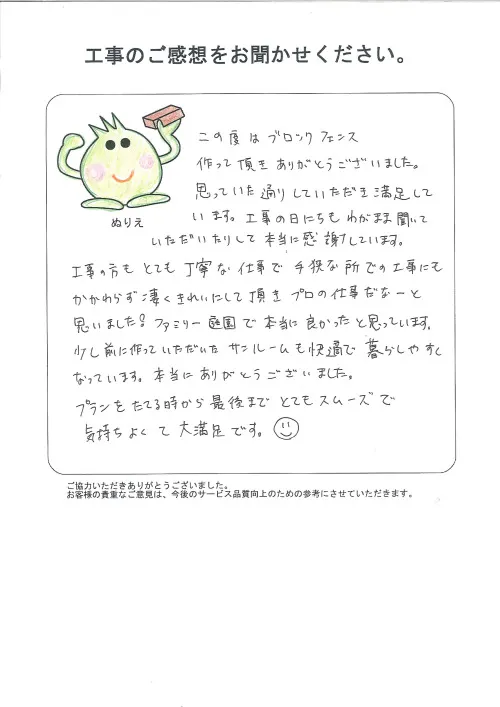 工事のご感想をお聞かせください。
この度は ブロックフェンス
作って頂き ありがとうございました。
思っていた通りしていただき満足して
います。工事の日にちも わがまま聞いて
いただいたりして 本当に感謝しています。
ぬりえ
工事の方も とても 丁寧な仕事で 手狭な所での工事にも
かかわらず凄くきれいにして頂き プロの仕事だなーと
思いました! ファミリー庭園で本当に良かったと思っています。
少し前に作っていただいた サンルームも快適で 暮らしやすく
なっています。本当にありがとうございました。
プランをたてる時から 最後まで とてもスムーズで
気持ちよくて 大満足です。
ご協力いただきありがとうございました。
お客様の貴重なご意見は、今後のサービス品質向上のための参考にさせていただきます。